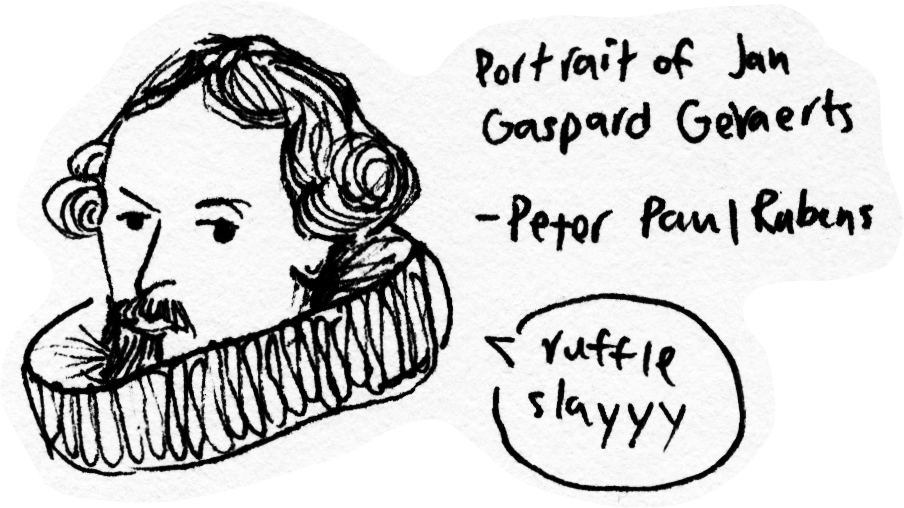 Portrait of Jan
Gaspard Gevaerts
-Peter Paul Rubens
ruffle
slayyy